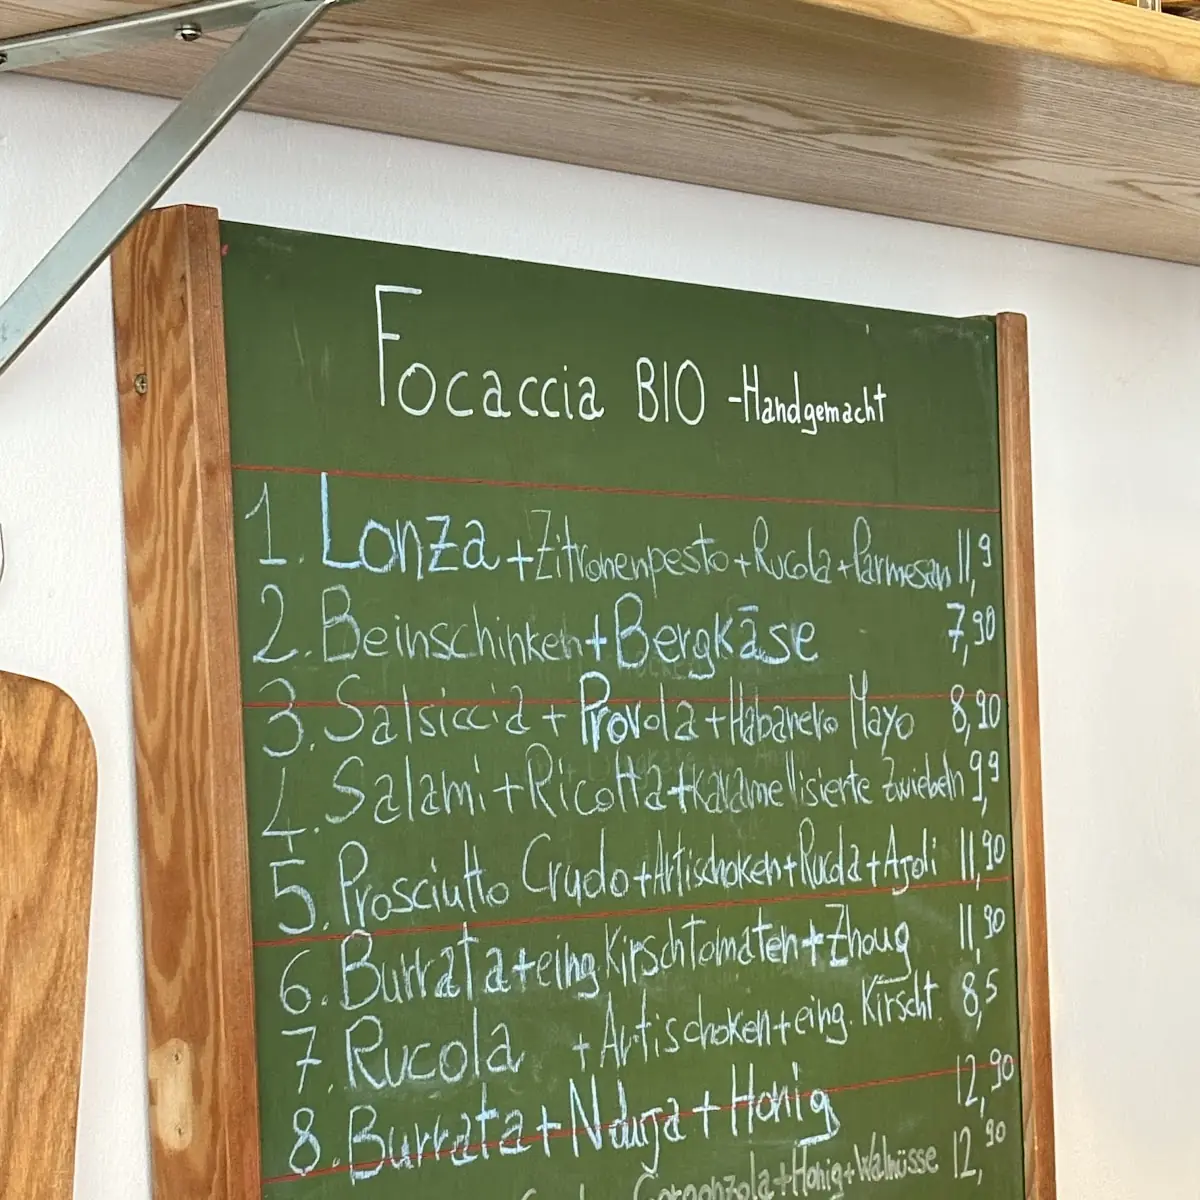 Focaccia BIO -Handgemacht
1. Lonza + Zitronenpesto + Rucola + Parmesan 11,9
2. Beinschinken + Bergkäse 7,90
3. Salsiccia + Provola + Habanero Mayo 8,90
4. Salami + Ricotta + karamellisierte Zwiebeln 9,9
5. Prosciutto Crudo + Artischoken + Rucola + Ajoli 11,90
6. Burrata + eing. Kirschtomaten + Zhoug 11,90
7. Rucola + Artischoken + eing. Kirscht. 8,5
8. Burrata + Nduja + Honig 12,90
Gorgonzola + Honig + Walnüsse 12,90